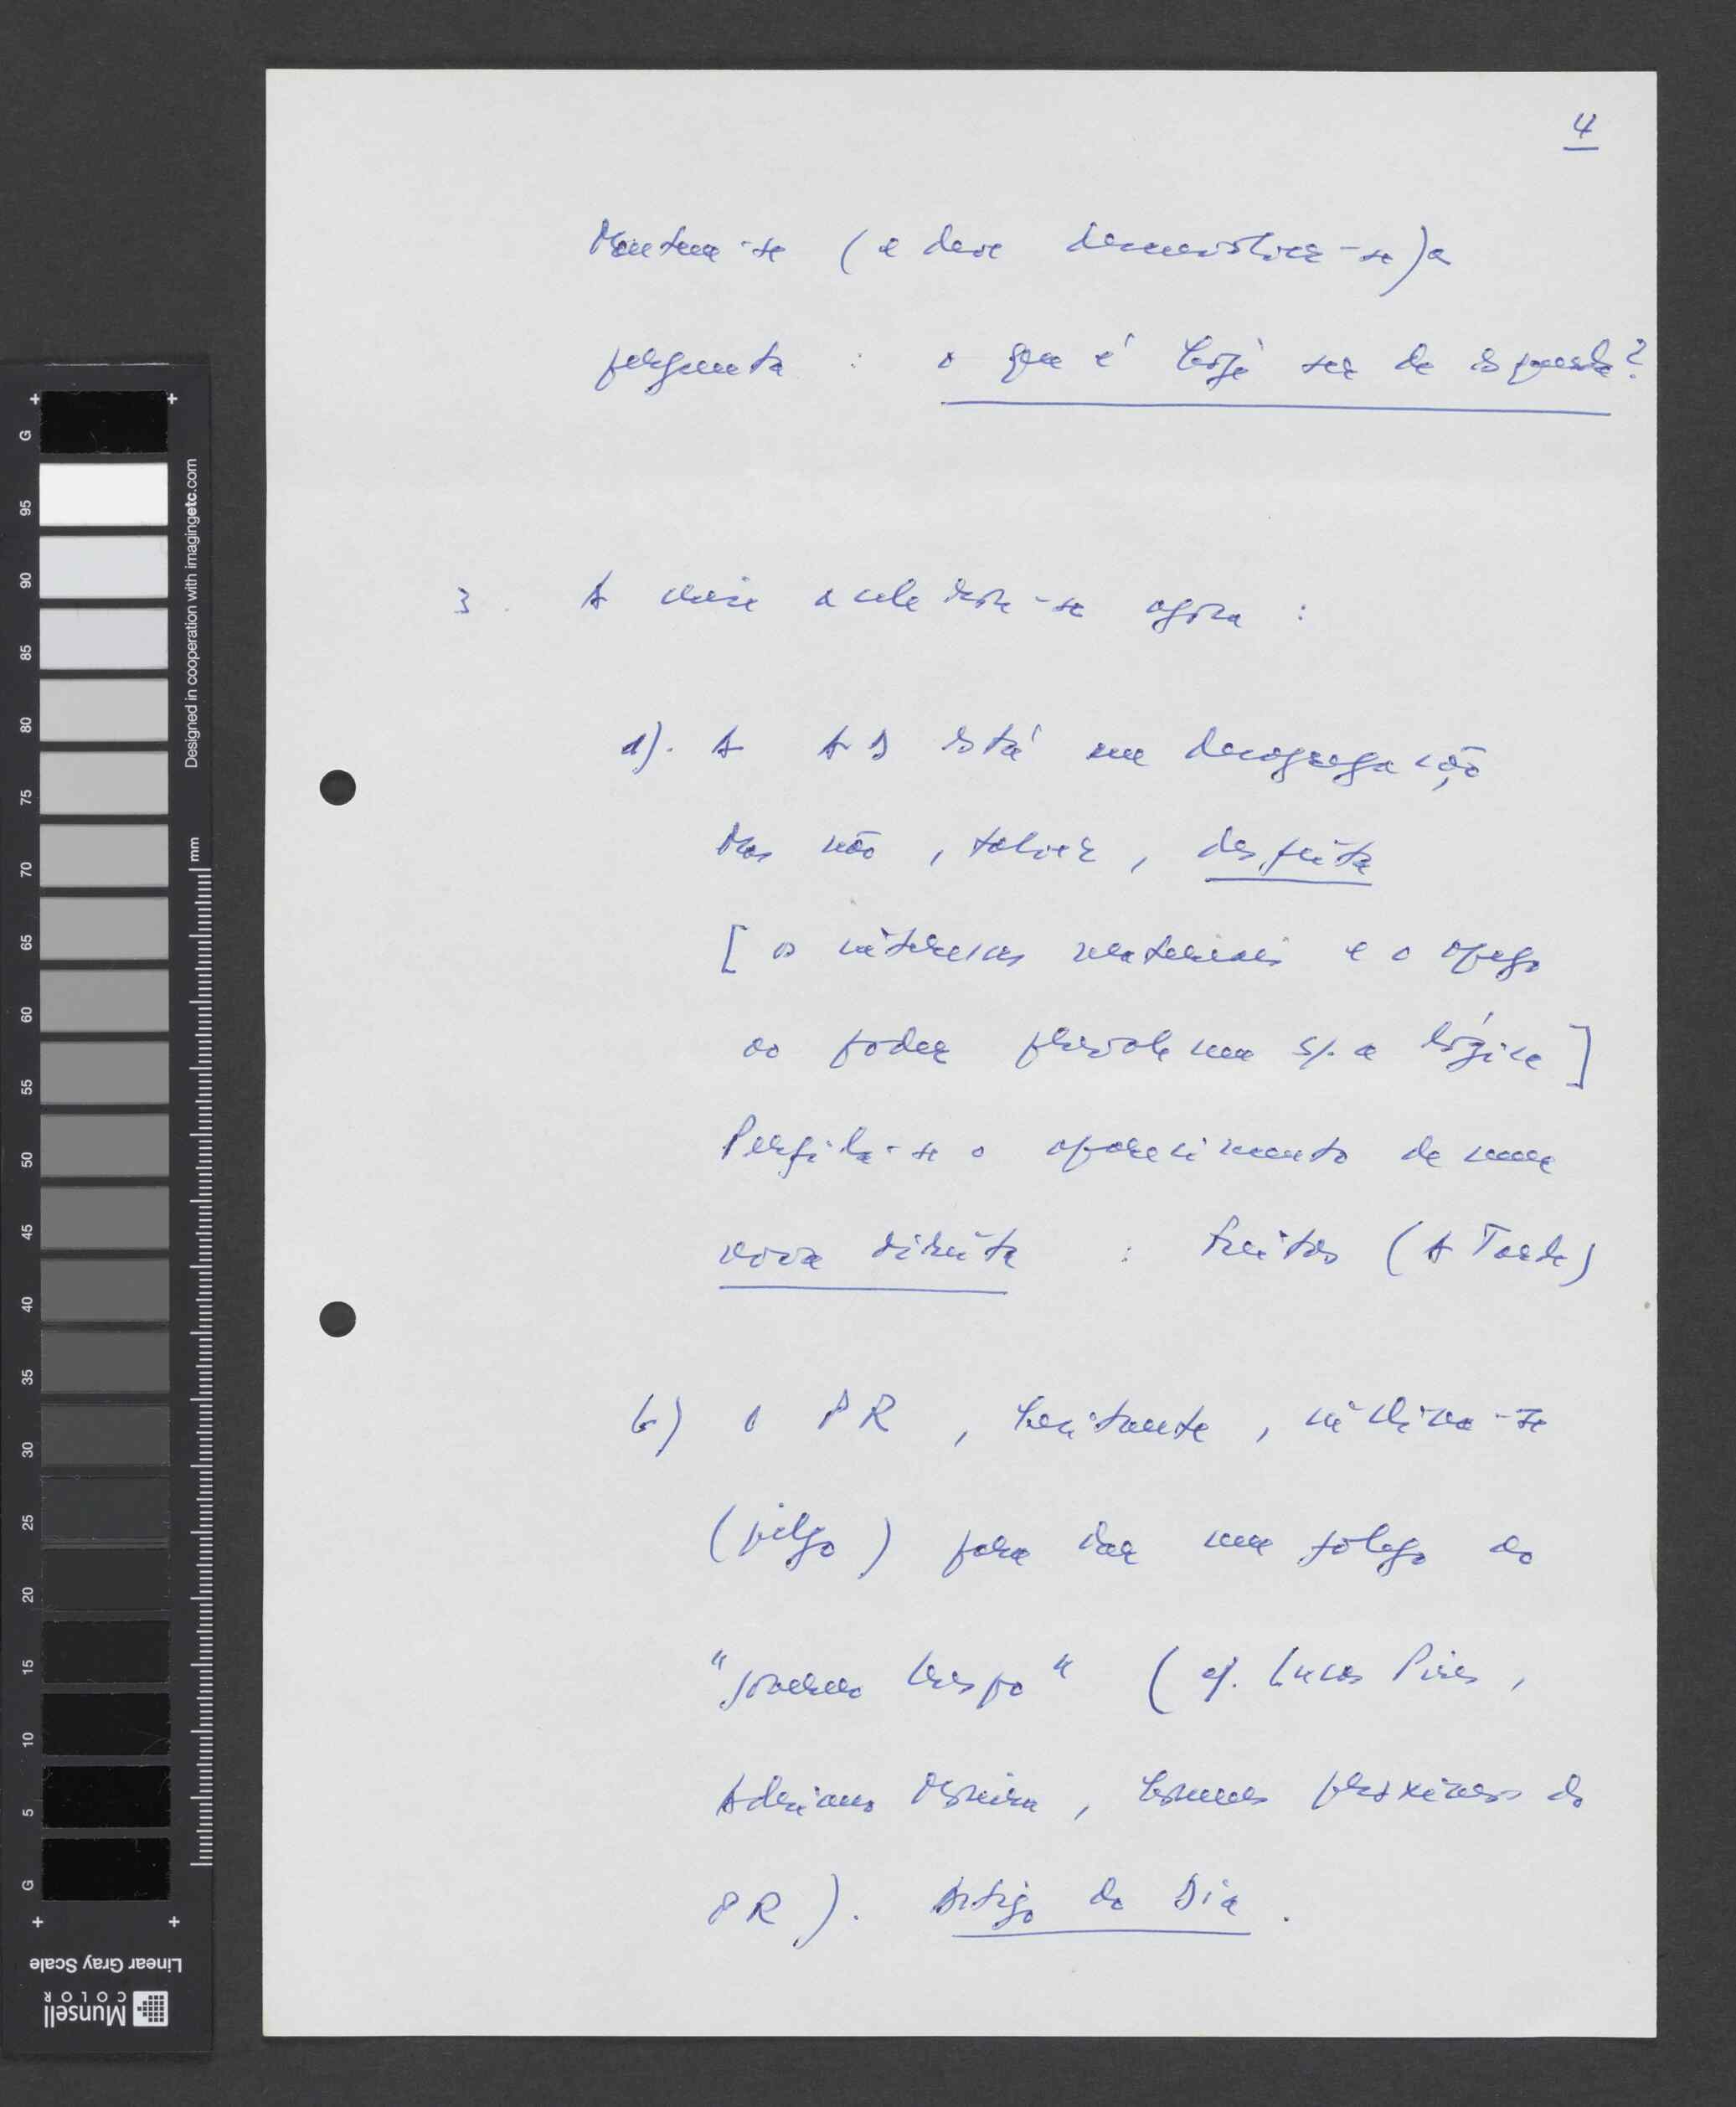 4
Mantem-se (e deve desmistificar-se) a
pergunta : o que é hoje ser de esquerda?
3. A crise acelera-se agora :
a). A AD está em desagregação
Mas não, talvez, desfeita
[os interesses materiais e o apego
ao poder prevalecem s/. a lógica]
Perfila-se o aparecimento de uma
nova direita : Freitas (A Tarde)
b) O PR, hesitante, inclina-se
(julgo) para dar um fôlego ao
"governo Crespo" (cf. Lucas Pires,
Adriano Moreira, homens próximos do
PR). Artigo do Dia.
+ +
G 95 90 85 80 75 70 65 60 55 50 45 40 35 30 25 20 15 10 5 G
Designed in cooperation with imagingetc.com
mm
+ +
Linear Gray Scale
Munsell
COLOR